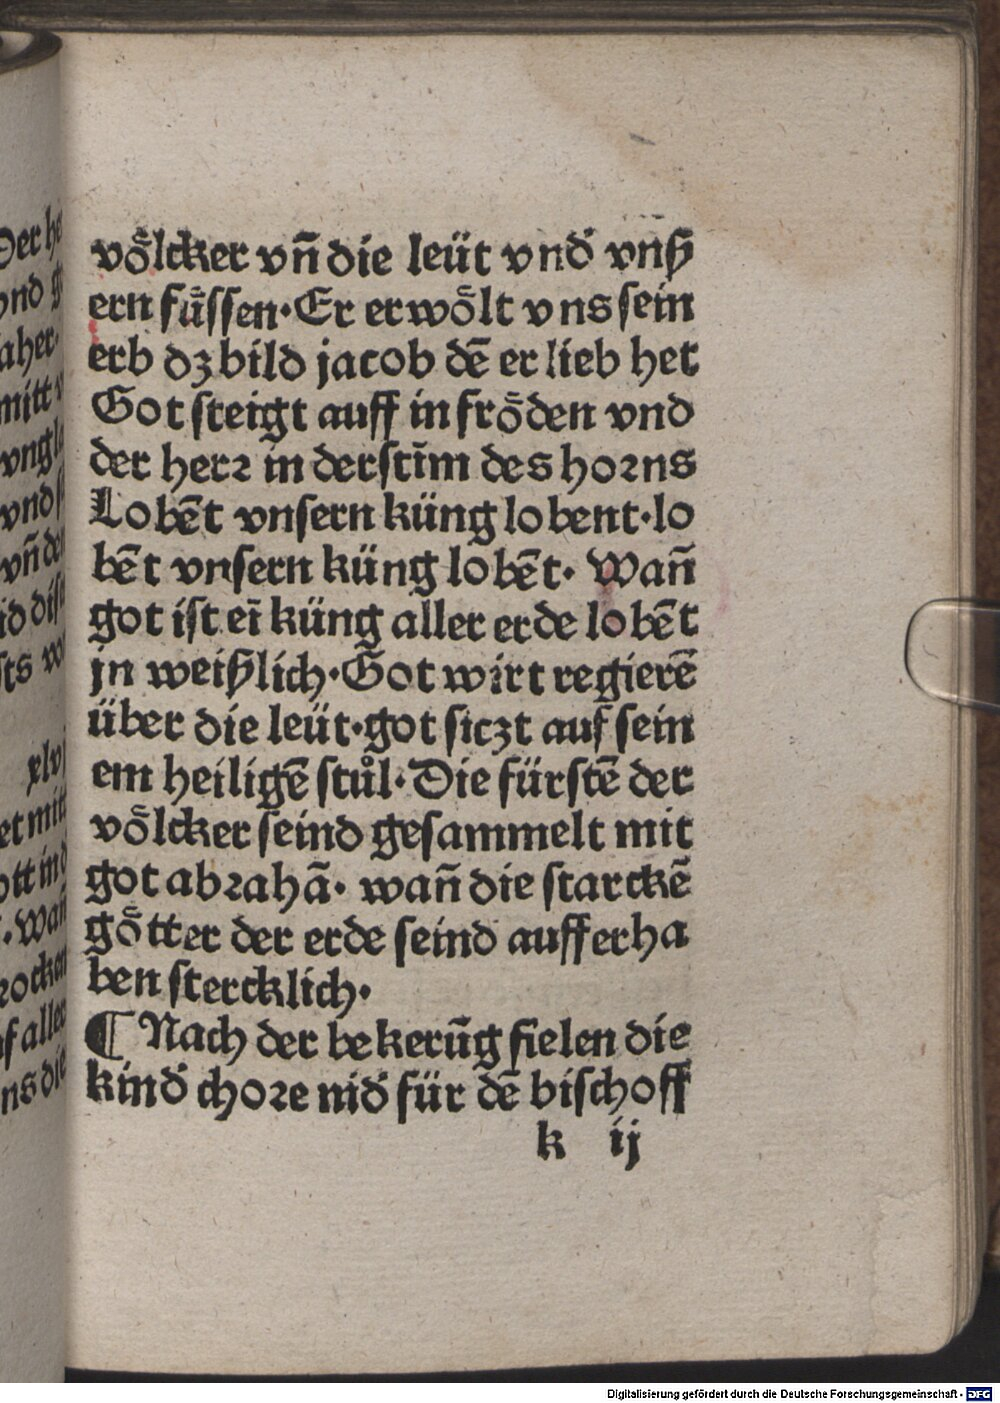 völcker vñ die leüt vnd' vnß
ern fu̇ssen·Er erwoͤlt vns sein
erb dz bild jacob dē er lieb het
Got steigt auff in froͤden vnd
der herꝛ in der stīm des hoꝛns
Lobēt vnsern küng lobent·lo
bēt vnsern küng lobēt· Wañ
got ist eī küng aller erde lobēt
jn weißlich·Got wirt regierē
über die leüt·got siczt auf sein
em heiligē stůl·Die fürstē der
voͤlcker seind gesammelt mit
got abꝛahā· wañ die starckē
goͤtter der erde seind aufferha
ben stercklich·
¶ Nach der bekerūg fielen die
kind' choꝛe nid' für dē bischoff
k ij
Der he
vnd g
aher·
mitt v
vngl
vnd s
vñ de
id dis
sts w
xlvj
et mit
ott in d
·Wañ
ꝛocken
of aller
ns die
Digitalisierung gefördert durch die Deutsche Forschungsgemeinschaft - DFG